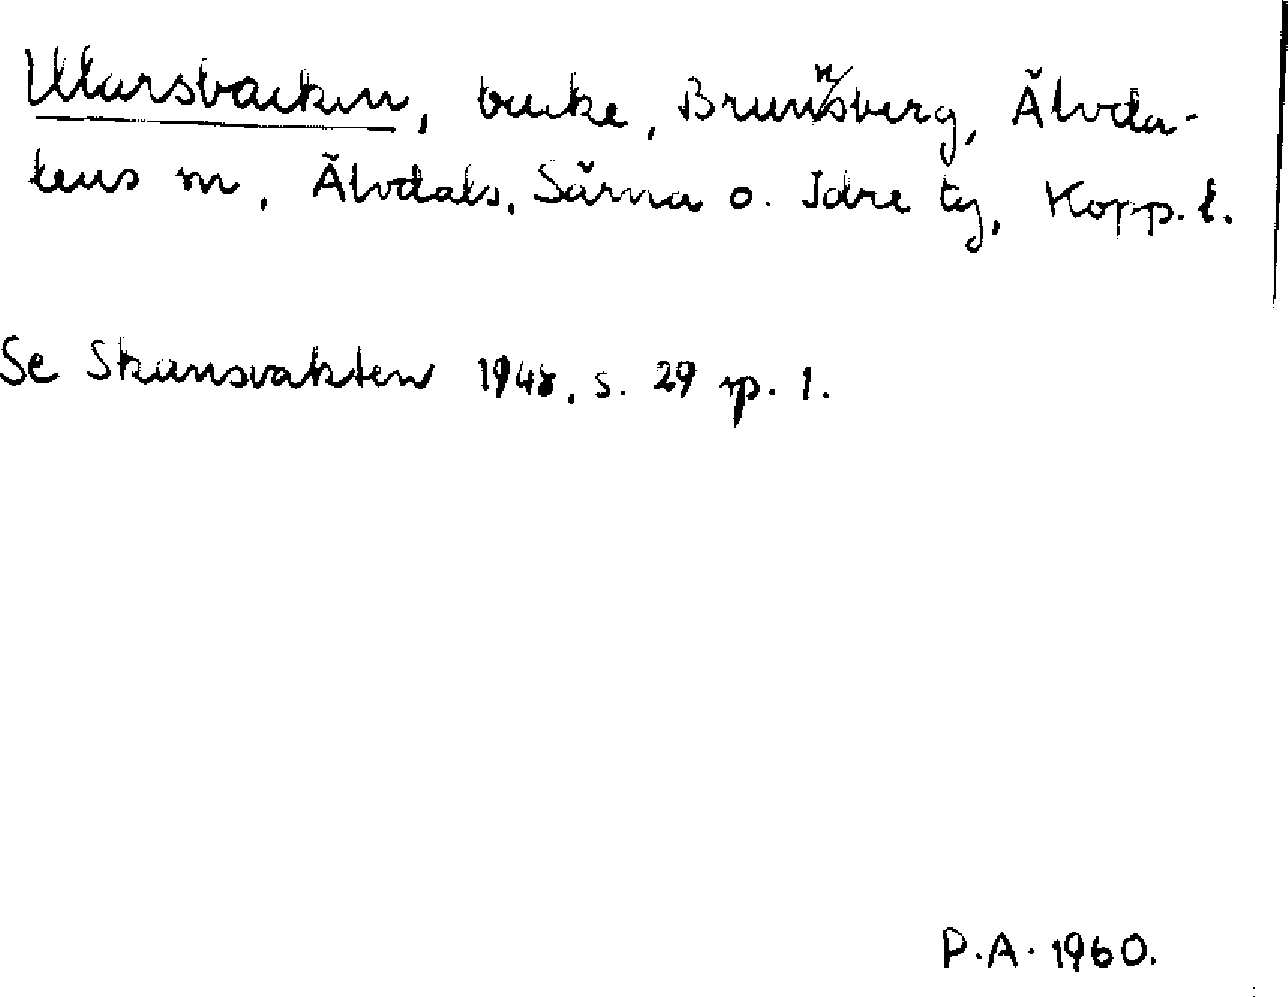 Ullarsbacken, backe, Brunnsberg, Älvda-
lens sn, Älvdals, Särna o. Idre tg, Kopp. l.
Se Skansvakten 1948, s. 29 sp. 1.
P.A. 1960.